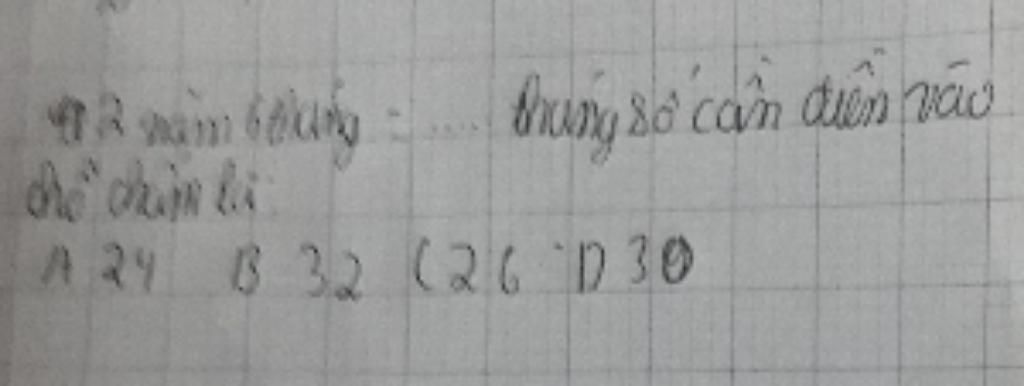 2 năm 6 tháng = .... tháng số cần điền vào
chỗ chấm là:
A 24 B 32 C 26 D 30